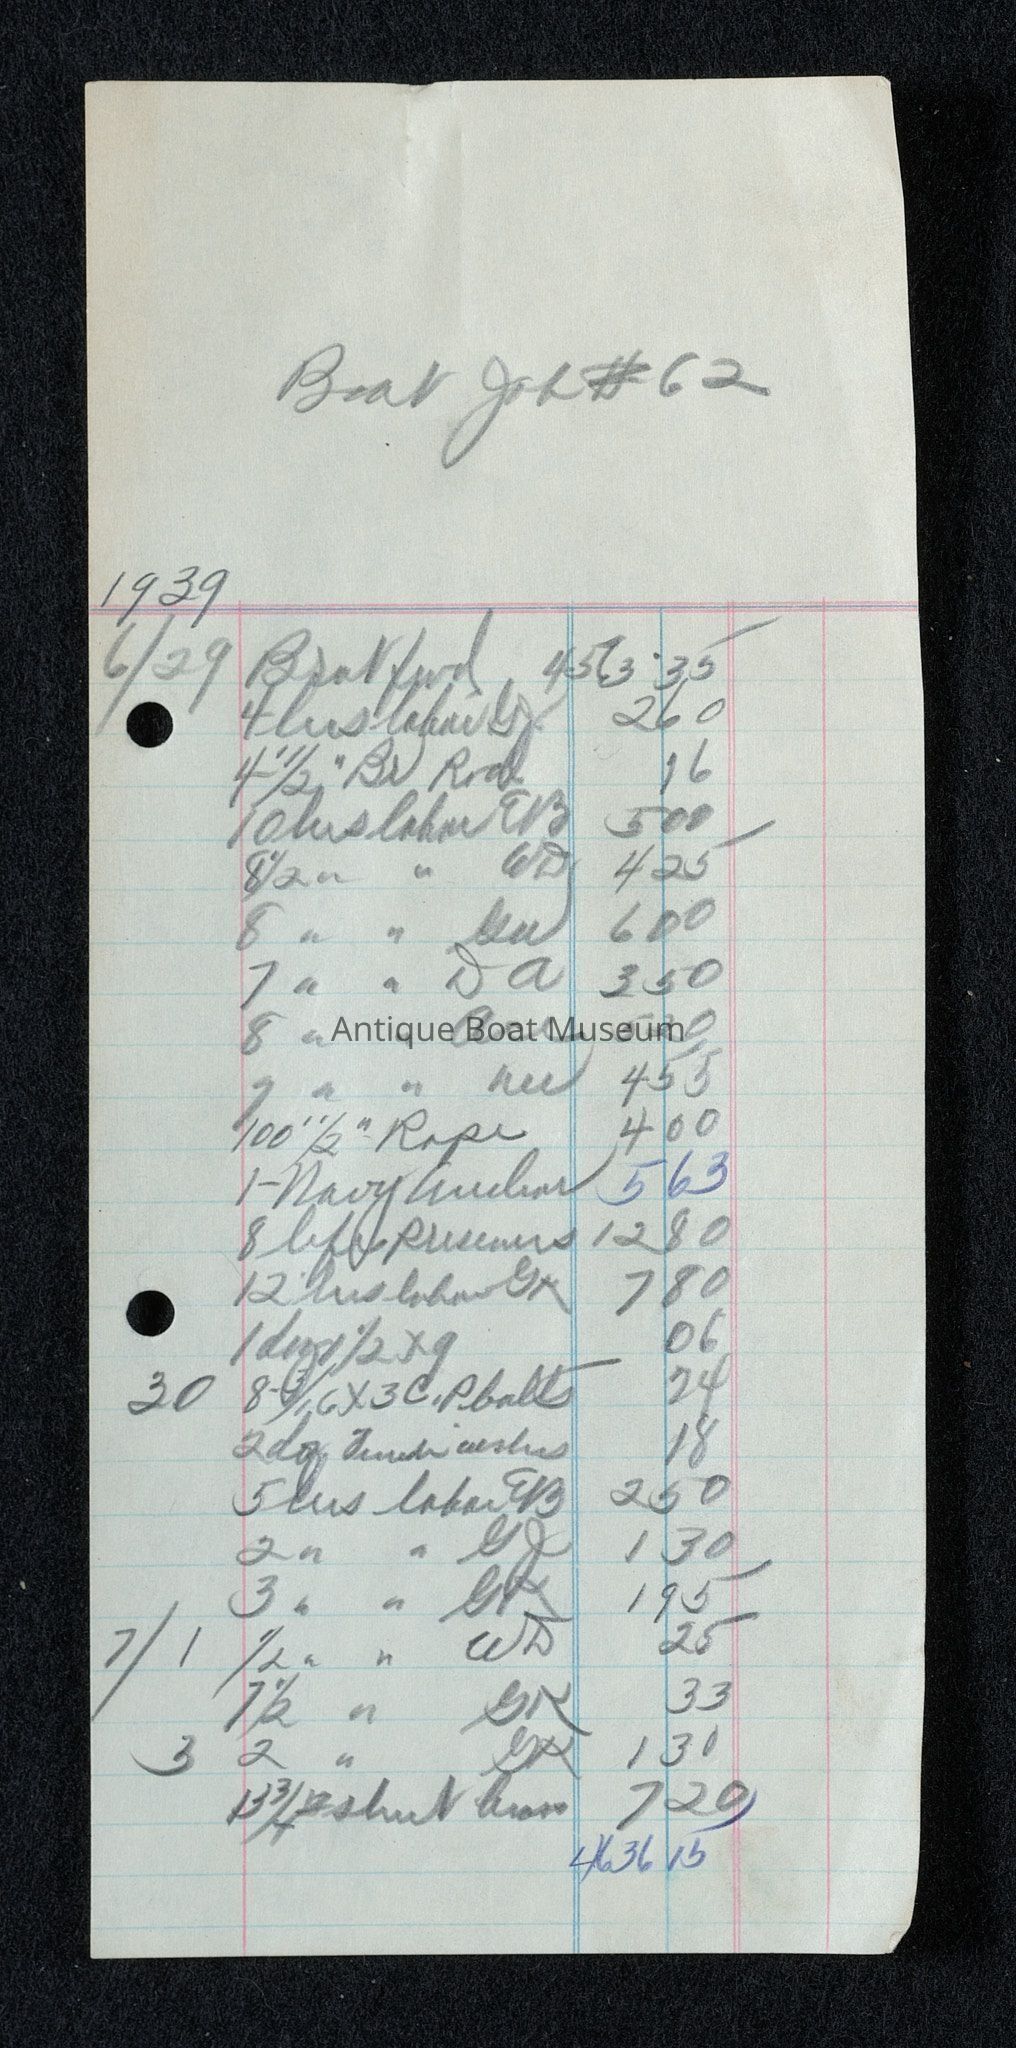 Boat Job #62
1939
6/29 Brot fwd 4563.35
4 hrs labor GJ 2 60
4' 1/2" Br Rod 16
10 hrs labor EB 5 00
8 1/2 " " WD 4 25
8 " " 6 00
7 " " DA 3 50
8 " "
7 " " 4 55
100' 1/2" Rope 4 00
1-Navy Anchor 5 63
8 life preservers 12 80
12 hrs labor GK 7 80
1 doz 1 1/2 x 9 06
30 8-3/16 x 3 C.P bolts 24
2 doz washers 18
5 hrs labor EB 2 50
2 " " GJ 1 30
3 " " GK 1 95
7/1 1/2 " " WD 25
1/2 " GK 33
3 2 " GK 1 30
13 3/4 # sheet brass 7 20
4636 15
Antique Boat Museum